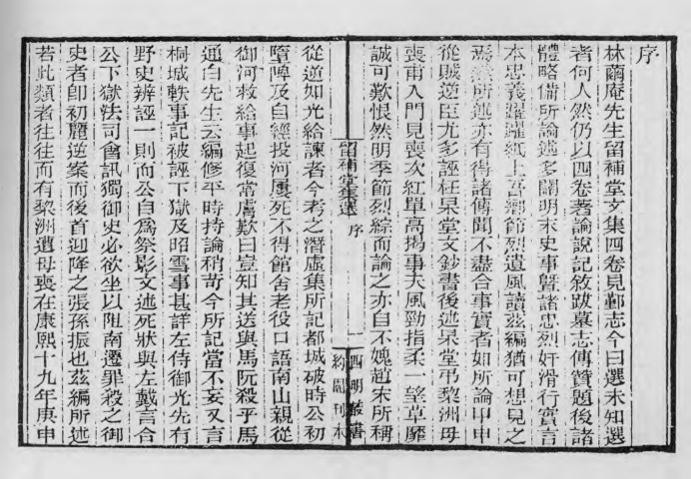 序
林繭庵先生留補堂文集四卷見鄞志今曰選未知選
者何人然仍以四卷著論說記敘跋墓志傳贊題後諸
體略備所論述多關明末史事暨諸忠烈奸滑行實言
本忠義躍躍紙上吾鄉節烈遺風讀茲編猶可想見之
焉然所述亦有得諸傳聞不盡合事實者如所論甲申
從賊逆臣尤多誣枉杲堂文鈔書後述杲堂弔黎洲母
喪甫入門見喪次紅單高揭事大風勁指柔一望草靡
誠可歎恨然明季節烈綜而論之亦自不媿趙宋所稱
留補堂集選 序
一 四明叢書
約園刊本
從逆如光給諫者今考之潛虛集所記都城破時公初
墮陴及自經投河屢死不得館舍老役口語南山親從
御河救給事起復常膚歎曰豈知其送與馬阮殺乎馬
通白先生云編修平時持論稍苛今所記當不妄又言
桐城軼事記被誣下獄及昭雪事甚詳左侍御光先有
野史辨誣一則而公自爲祭影文述死狀與左戴言合
公下獄法司會訊獨御史必欲坐以阻南遷罪殺之御
史者即初麗逆案而後首迎降之張孫振也茲編所述
若此類者往往而有黎洲遭母喪在康熙十九年庚申